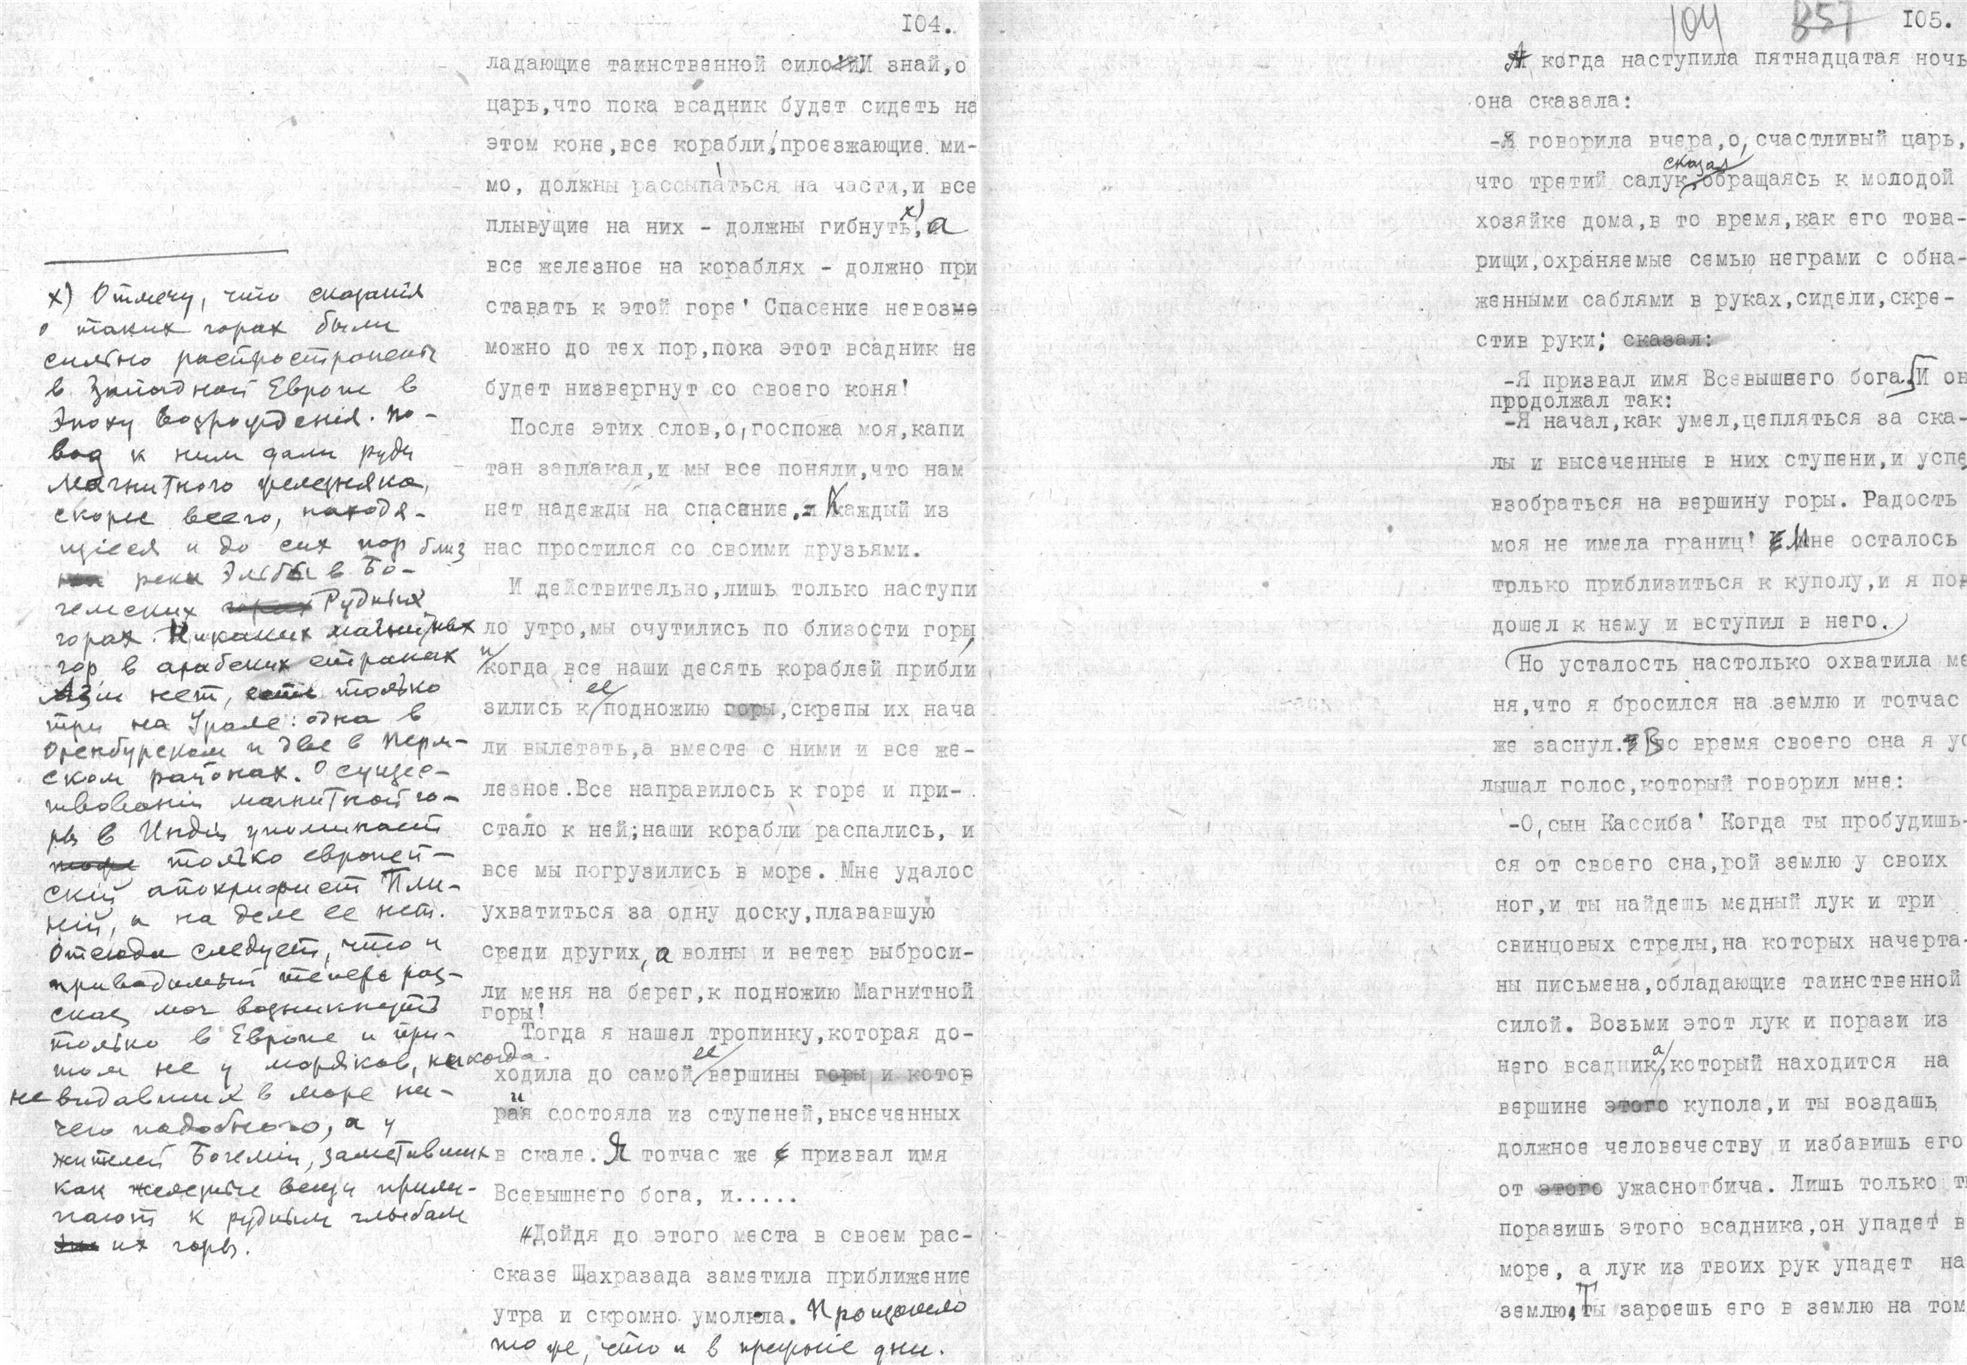 104.
ладающие таинственной силой И знай,о
царь,что пока всадник будет сидеть на
этом коне,все корабли,проезжающие ми-
мо, должны рассыпаться на части,и все
плывущие на них - должны гибнуть,х) а
все железное на кораблях - должно при
ставать к этой горе! Спасение невозмо
можно до тех пор,пока этот всадник не
будет низвергнут со своего коня!
После этих слов,о,госпожа моя,капи
тан заплакал,и мы все поняли,что нам
нет надежды на спасение. Каждый из
нас простился со своими друзьями.
И действительно,лишь только наступи
ло утро,мы очутились по близости горы,
и когда все наши десять кораблей прибли
зились к ее подножию горы,скрепы их нача
ли вылетать,а вместе с ними и все же-
лезное.Все направилось к горе и при-
стало к ней;наши корабли распались, и
все мы погрузились в море. Мне удалос
ухватиться за одну доску,плававшую
среди других, а волны и ветер выброси-
ли меня на берег,к подножию Магнитной
горы!
Тогда я нашел тропинку,которая до-
ходила до самой ее вершины горы и котор
рая и состояла из ступеней,высеченных
в скале. Я тотчас же призвал имя
Всевышнего бога, и.....
Дойдя до этого места в своем рас-
сказе Щахразада заметила приближение
утра и скромно умолкла. Произошло
то же, что и в прежние дни.
х) Отмечу, что сказания
о таких горах были
сильно распространены
в Западной Европе в
эпоху возрождения. По-
вод к ним дали руды
магнитного железняка,
скорее всего, находя-
щиеся и до сих пор близ
реки Эльбы в Бо-
гемских горах Рудных
горах. Никаких магнитных
гор в арабских странах
Азии нет, есть только
три на Урале: одна в
Оренбурском и две в Перм-
ском районах. О сущес-
твовании магнитной го-
ры в Индии упоминает
тоже только европей-
ский апокрифист Пли-
ний, а на деле ее нет.
Отсюда следует, что и
приводимый теперь раз-
сказ мог возникнуть
только в Европе и при-
том не у моряков, никогда
не видавших в море ни-
чего подобного, а у
жителей Богемии, заметивших
как железные вещи прили-
пают к рудным глыбам
их горы.
104 357 105.
А когда наступила пятнадцатая ночь
она сказала:
-Я говорила вчера,о,счастливый царь,
что третий салук, сказал обращаясь к молодой
хозяйке дома,в то время,как его това-
рищи,охраняемые семью неграми с обна-
женными саблями в руках,сидели,скре-
стив руки; сказал:
-Я призвал имя Всевышнего бога. И он
продолжал так:
-Я начал,как умел,цепляться за ска-
лы и высеченные в них ступени,и успе
взобраться на вершину горы. Радость
моя не имела границ! Мне осталось
только приблизиться к куполу,и я под
дошел к нему и вступил в него.
Но усталость настолько охватила ме
ня,что я бросился на землю и тотчас
же заснул. Во время своего сна я ус
лышал голос,который говорил мне:
-О,сын Кассиба! Когда ты пробудишь-
ся от своего сна,рой землю у своих
ног,и ты найдешь медный лук и три
свинцовых стрелы,на которых начерта-
ны письмена,обладающие таинственной
силой. Возьми этот лук и порази из
него всадника,который находится на
вершине этого купола,и ты воздашь
должное человечеству и избавишь его
от этого ужаснотбича. Лишь только ты
поразишь этого всадника,он упадет в
море, а лук из твоих рук упадет на
землю. Ты зароешь его в землю на том